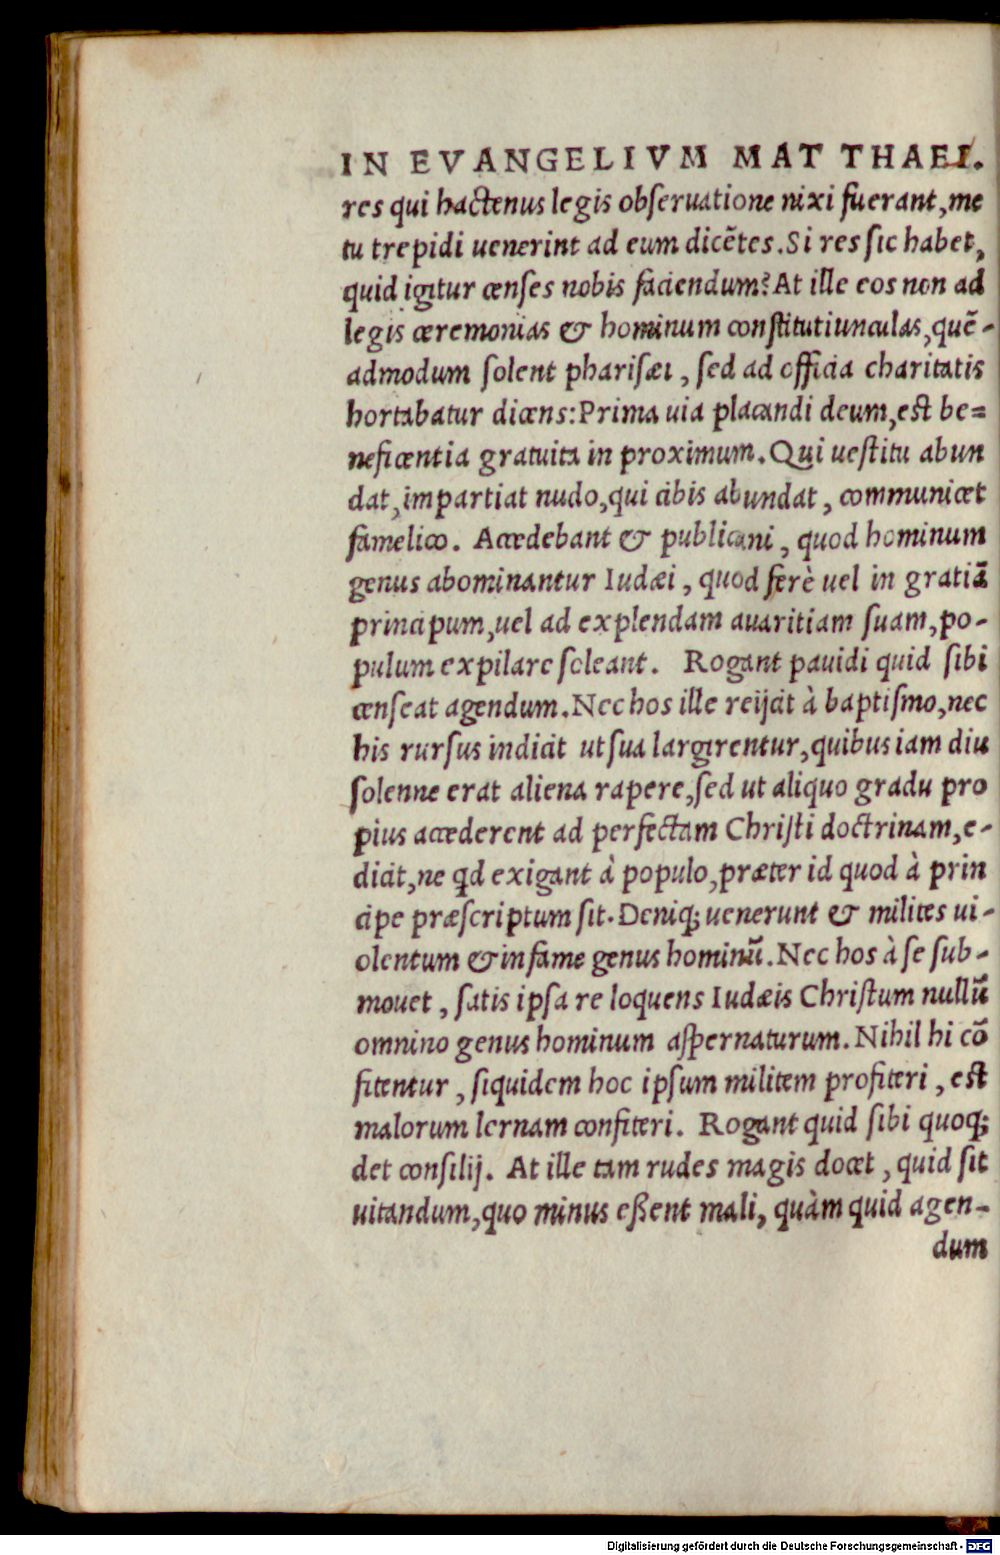 IN EVANGELIVM MATTHAEI.
res qui hactenus legis obseruatione nixi fuerant, me
tu trepidi uenerint ad eum dicẽtes. Si res sic habet,
quid igitur censes nobis faciendum? At ille eos non ad
legis ceremonias & hominum constitutiunculas, quẽ-
admodum solent pharisæi, sed ad officia charitatis
hortabatur dicens: Prima uia placandi deum, est be=
neficentia gratuita in proximum. Qui uestitu abun
dat, impartiat nudo, qui cibis abundat, communicet
famelico. Accedebant & publicani, quod hominum
genus abominantur Iudæi, quod ferè uel in gratiã
principum, uel ad explendam auaritiam suam, po-
pulum expilare soleant. Rogant pauidi quid sibi
censeat agendum. Nec hos ille reijcit à baptismo, nec
his rursus indicit ut sua largirentur, quibus iam diu
solenne erat aliena rapere, sed ut aliquo gradu pro
pius accederent ad perfectam Christi doctrinam, e-
dicit, ne qd exigant à populo, præter id quod à prin
cipe præscriptum sit. Deniq; uenerunt & milites ui-
olentum & infame genus hominũ. Nec hos à se sub-
mouet, satis ipsa re loquens Iudæis Christum nullũ
omnino genus hominum aspernaturum. Nihil hi cõ
fitentur, siquidem hoc ipsum militem profiteri, est
malorum lernam confiteri. Rogant quid sibi quoq;
det consilij. At ille tam rudes magis docet, quid sit
uitandum, quo minus eßent mali, quàm quid agen-
dum
Digitalisierung gefördert durch die Deutsche Forschungsgemeinschaft - DFG